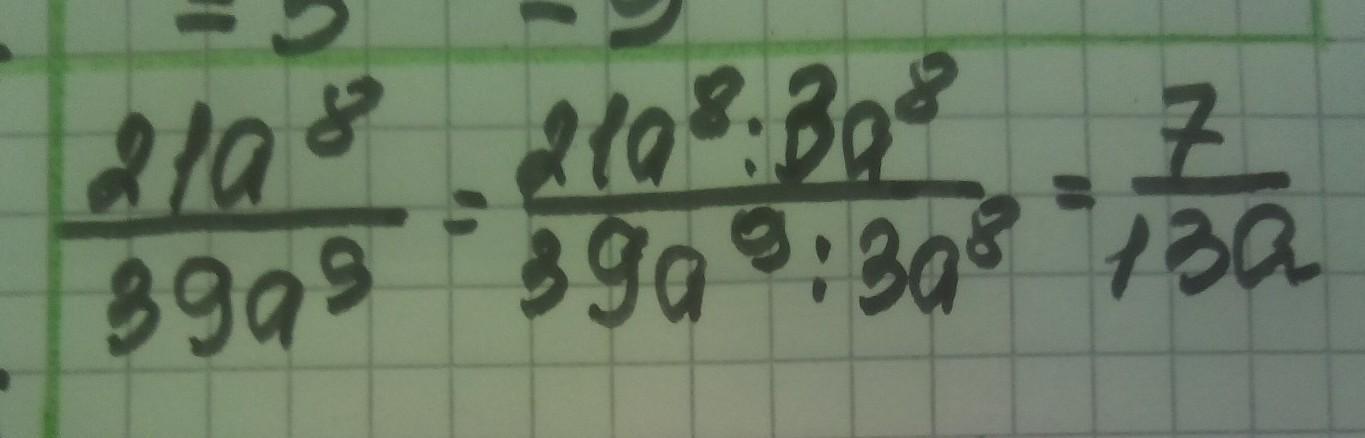 = 5 - 9
21a⁸/39a⁹ = 21a⁸:3a⁸/39a⁹:3a⁸ = 7/13a